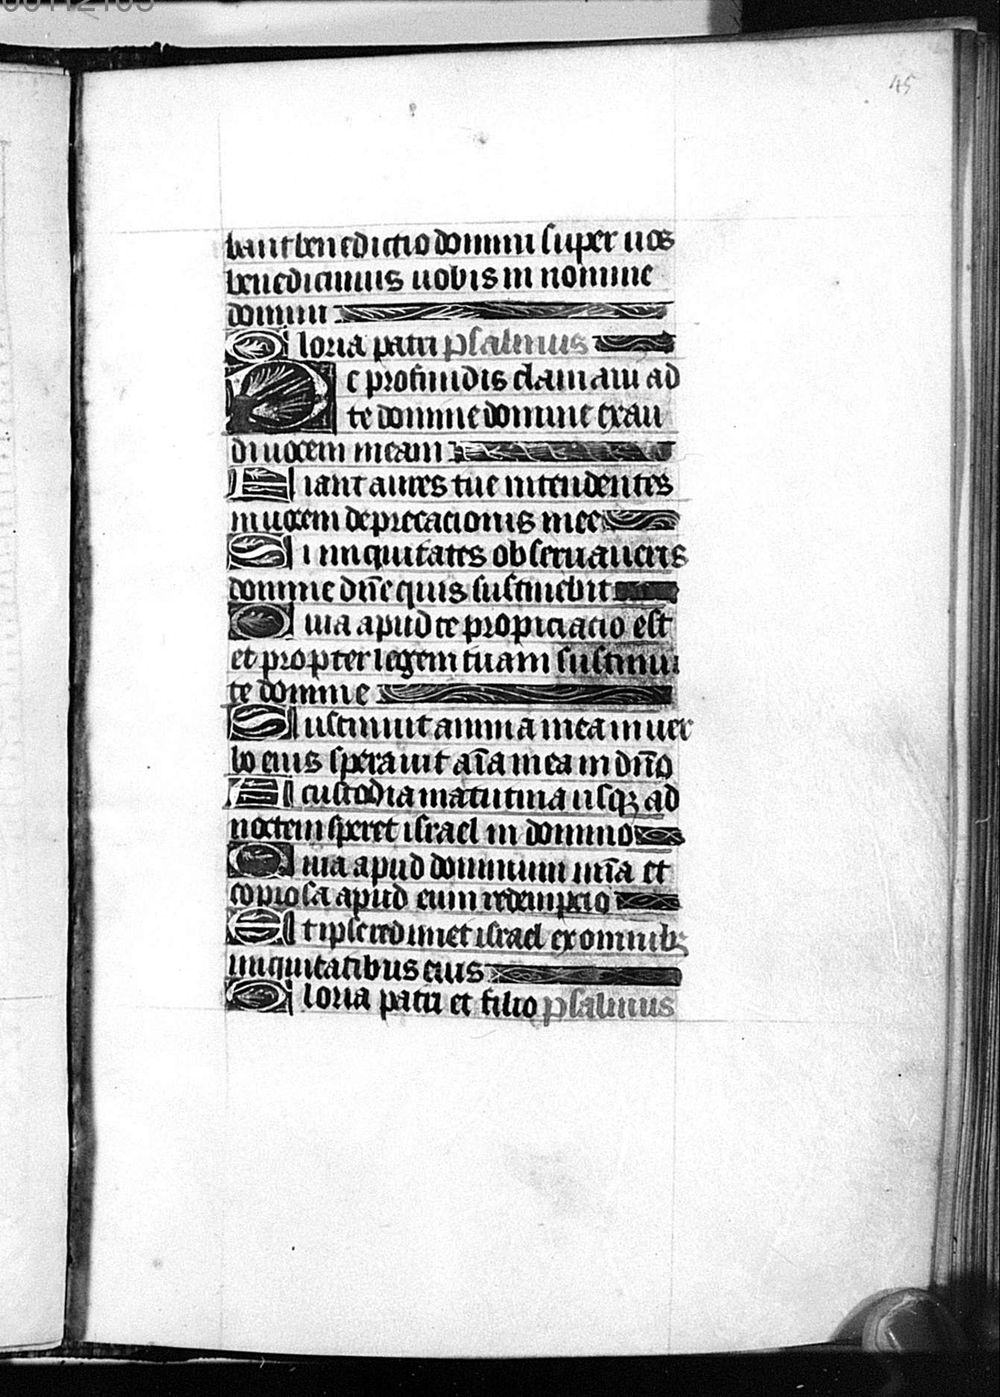 45
bant benedictio domini super uos
benedicimus uobis in nomine
domini
Gloria patri psalmus
De profundis clamaui ad
te domine domine exau
di uocem meam
Fiant aures tue intendentes
in uocem deprecacionis mee
Si iniquitates obseruaueris
domine dñe quis sustinebit
Quia apud te propiciacio est
et propter legem tuam sustinui
te domine
Sustinuit anima mea in uer
bo eius sperauit aīa mea in dñō
A custodia matutina usqꝫ ad
noctem speret israel in domino
Quia apud dominum mīa et
copiosa apud eum redempcio
Et ipse redimet israel ex omnibꝫ
iniquitatibus eius
Gloria patri et filio psalmus